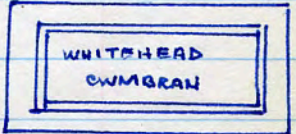 WHITEHEAD
CWMBRAN